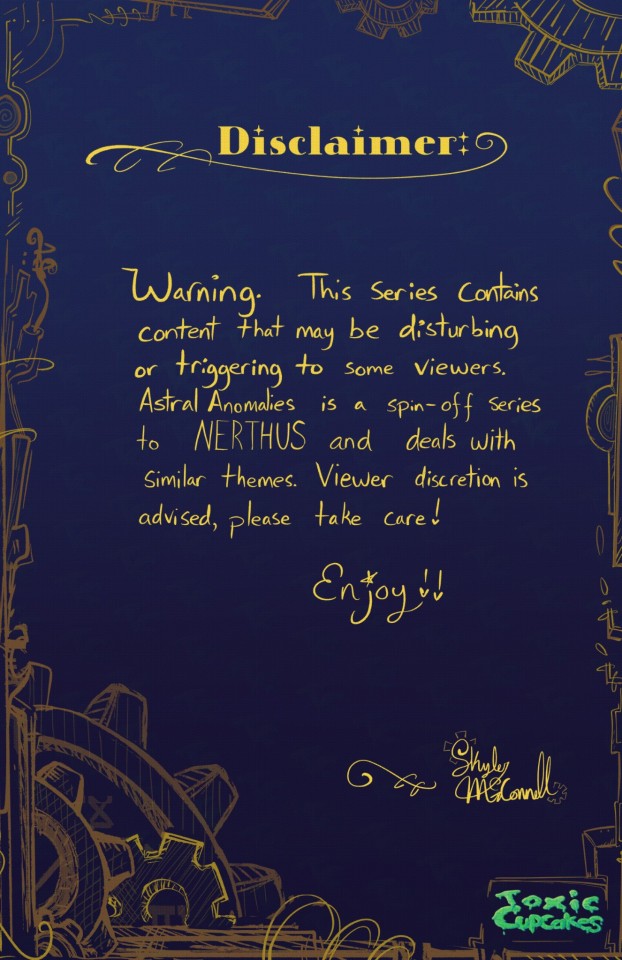 Disclaimer:
Warning. This series contains
content that may be disturbing
or triggering to some viewers.
Astral Anomalies is a spin-off series
to NERTHUS and deals with
similar themes. Viewer discretion is
advised, please take care!
Enjoy!!
Skyler
McConnell
Toxic
Cupcakes